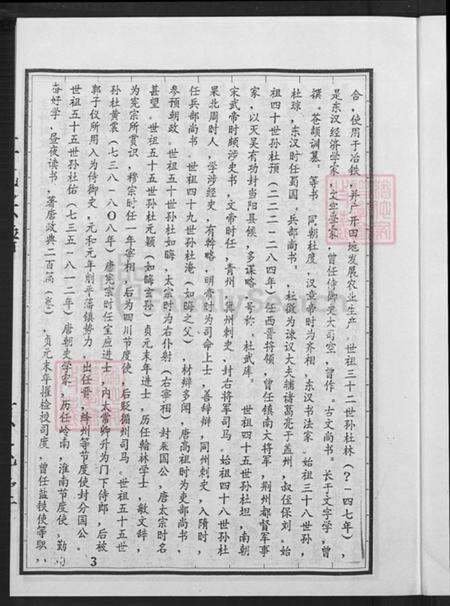 合，使用于冶铁，并广开田地发展农业生产。世祖三十二世孙杜林（？—四七年），
是东汉经济学家，文字学家，曾任侍御史大司空，曾作。古文尚书。长于文字学，曾
撰。苍颉训纂。等书 同朝杜度，汉章帝时为齐相，东汉书法家。始祖三十八世孙，
杜琼，东汉时任蜀国。兵部尚书。，杜微为谏议大夫辅诸葛亮于孟州，叔侄保刘。始
祖四十世孙杜预（二二二—二八四年）任西晋将领，曾任镇南大将军，荆州都督军事
家，以灭吴有功封当阳县侯，多谋略，号称。杜武库。 世祖四十五世孙杜坦，南朝
宋武帝时颇涉史书，文帝时任，青州，冀州刺史，封右将军司马。始祖四十八世孙杜
果北周时人，学涉经史，有幹略，明帝时为司命上士，善辩辭，同州刺史，入隋时，
任兵部尚书。世祖四十九世孙杜淹（如晦之父），材辩多闻，唐高祖时为吏部尚书，
参预朝政。世祖五十世孙杜如晦，太宗时为右仆射（右宰相）封莱国公，唐太宗时名
甚望。世祖五十五世孙杜元颖（如晦玄孙）贞元末年进士，历任翰林学士，敏文辞，
为宪宗所赏识，穆宗时任一年宰相，后为四川节度使，后贬循州司马。世祖五十五世
孙杜黄裳（七三八—八〇八年）唐宪宗时任宝应进士，内太常卿升为门下侍郎，后被
郭子仪所用入为侍御史，元和元年削平藩镇势力，出任晋，绛州等节度使封分国公。
世祖五十五世孙杜佑（七三五—八一二年）唐朝史学家，历任岭南，淮南节度使，勤
奋好学，昼夜读书，著唐政典二百篇（卷），贞元末年擢检授司度，曾任盐铁使等职，
3